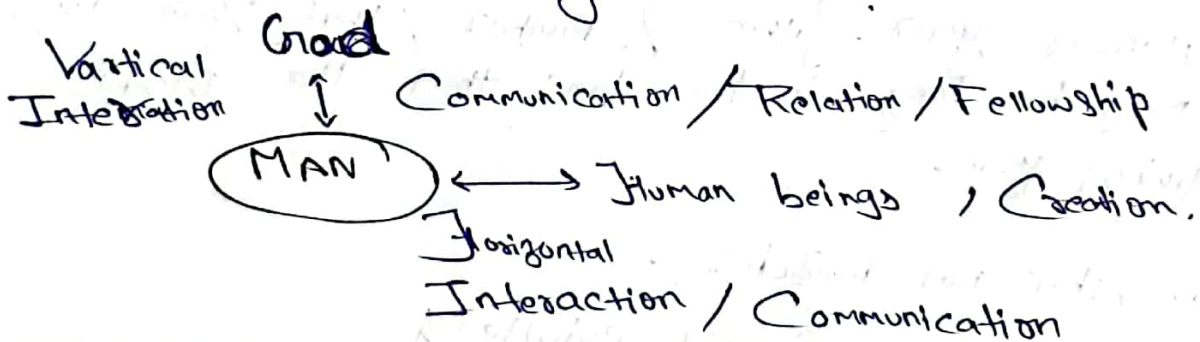 God
Vartical
Interation
Communication / Relation / Fellowship
MAN
Human beings , Creation.
Horizontal
Interaction / Communication